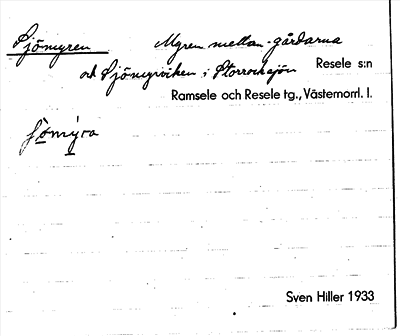 Sjömyren Myren mellan gårdarna
och Sjömyrviken i Storrocksjön Resele s:n
Ramsele och Resele tg., Västernorrl. l.
sömýra
Sven Hiller 1933